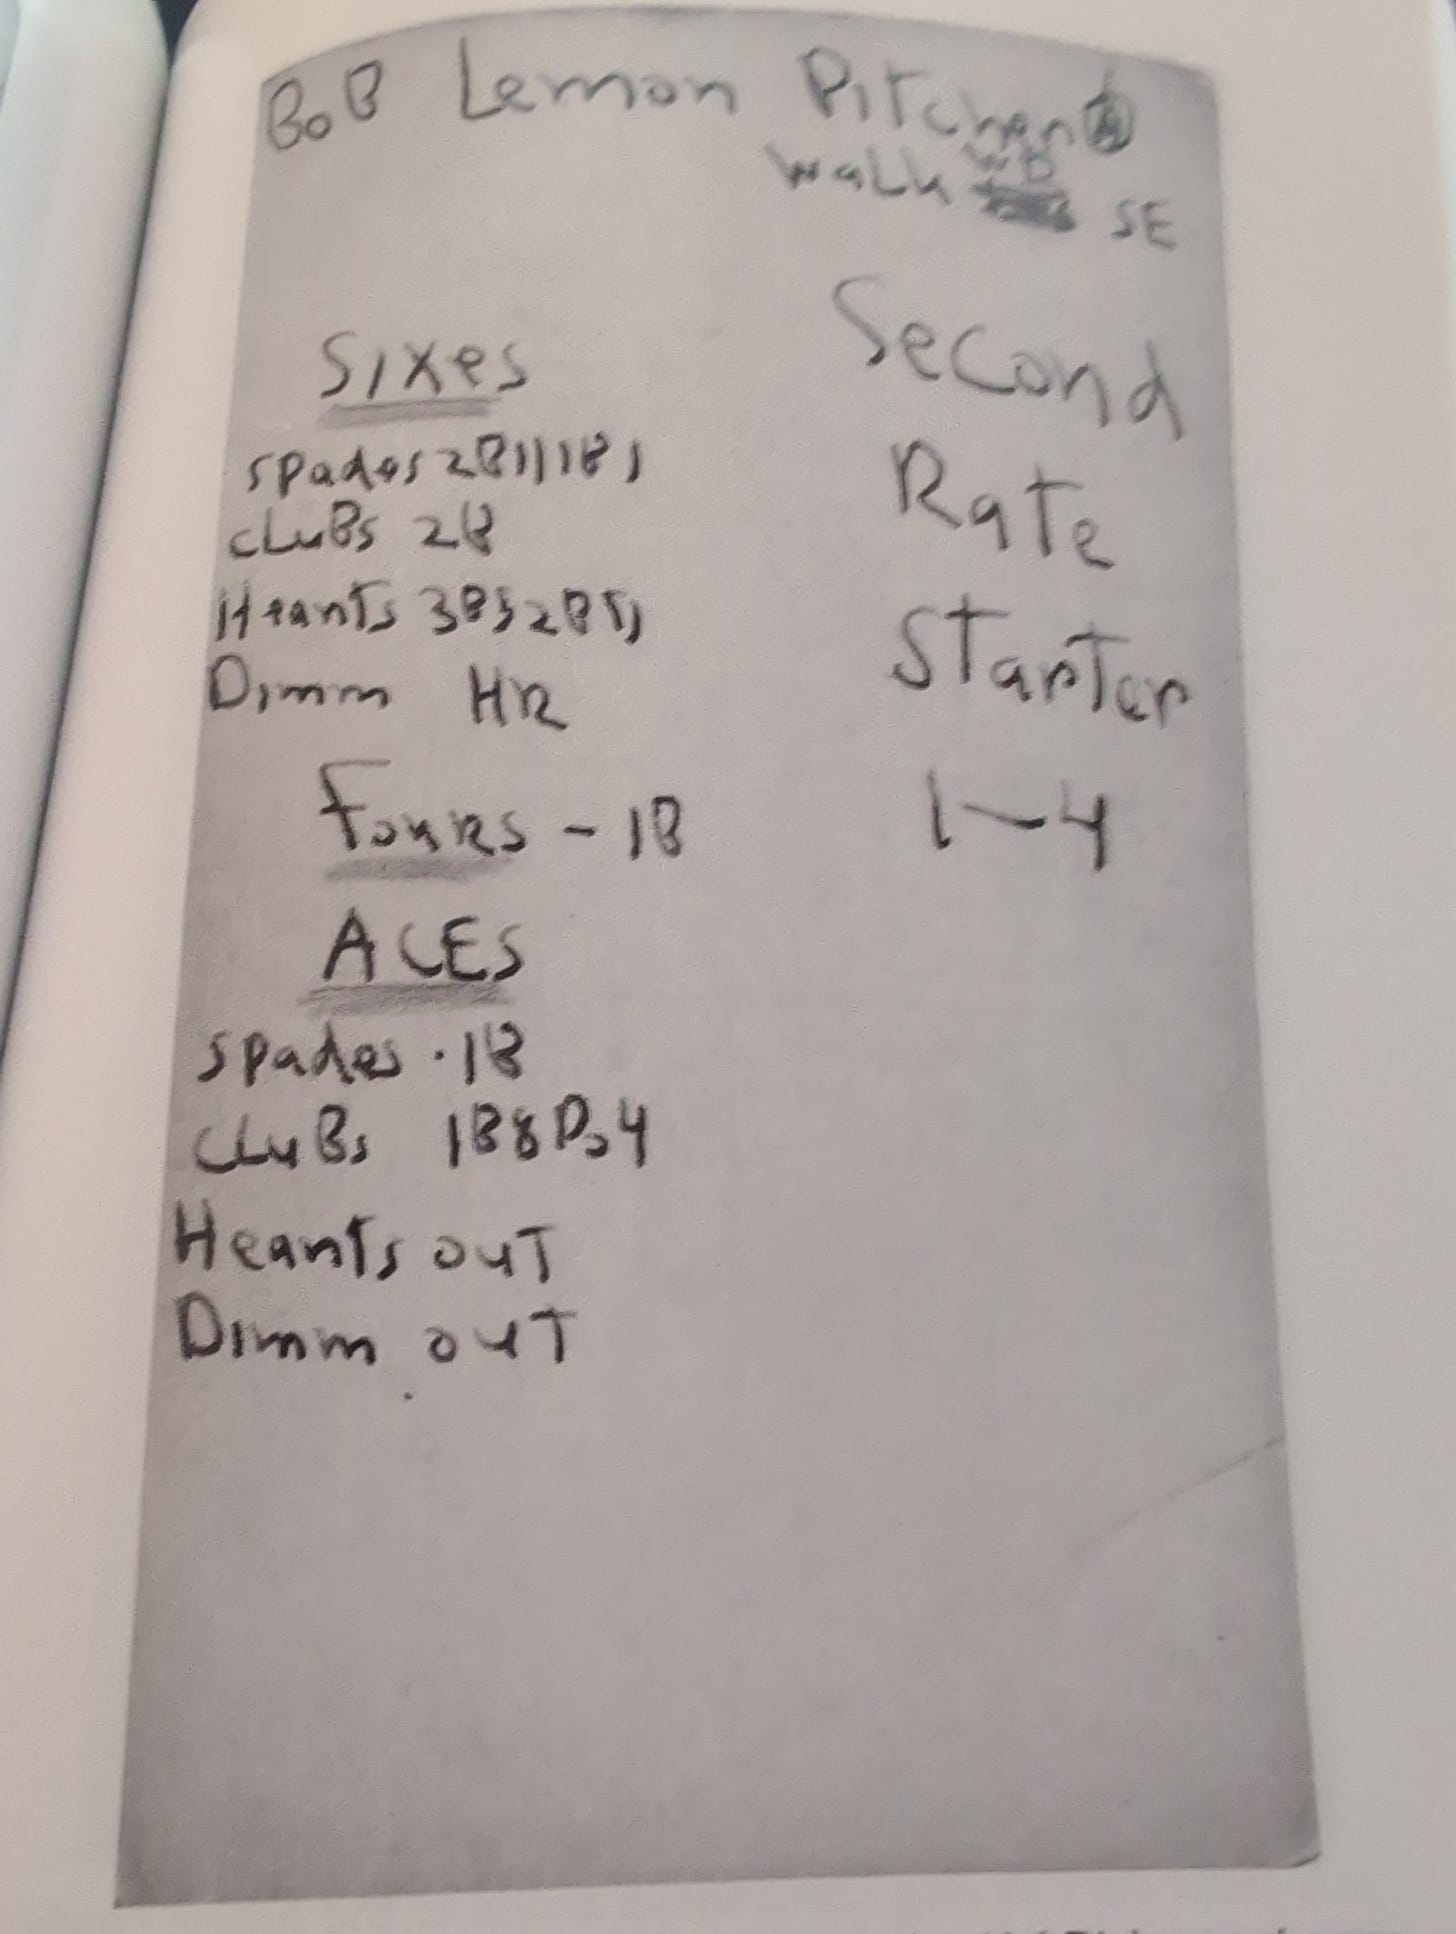 BoB Lemon Pitcher
walk WP SE
Sixes
spades 2B
cluBs 2B
Hearts
Dimm HR
Fours - 1B
ACES
spades · 1B
cluBs 1B8
Hearts ouT
Dimm ouT
Second
RaTe
STarTer
1-4